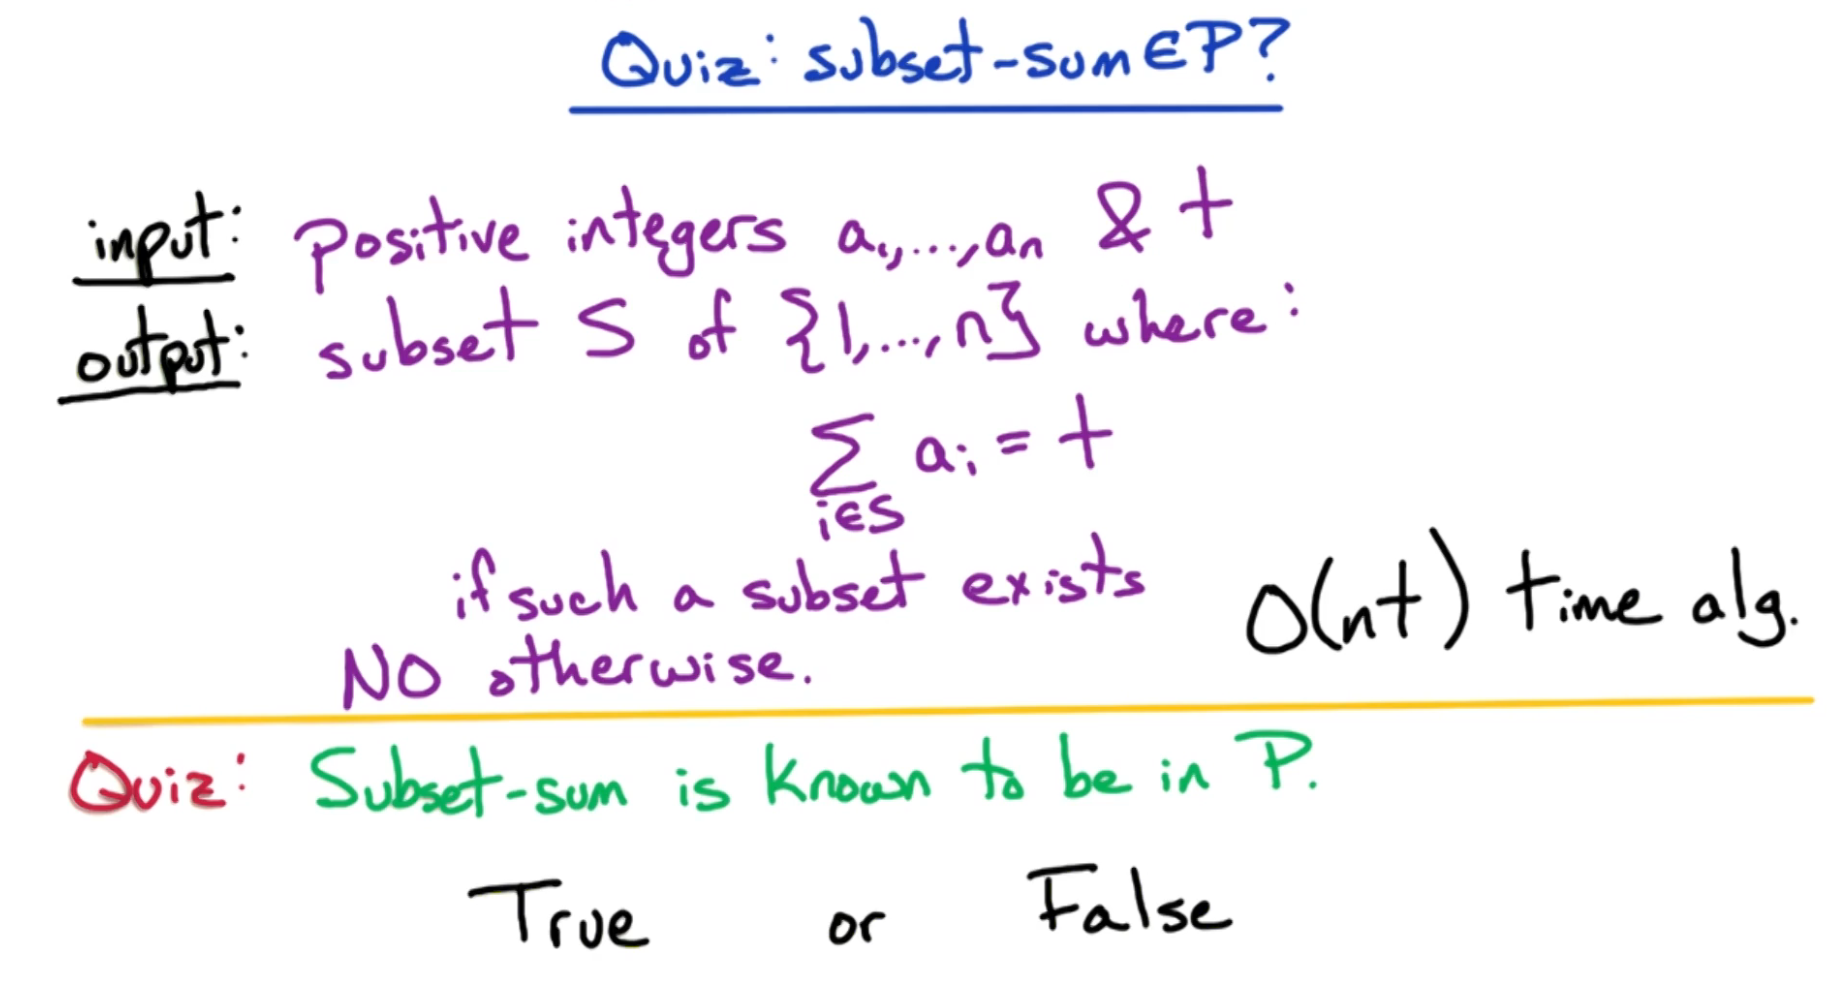 Quiz: subset-sum ∈ P?
input: positive integers a₁,...,aₙ & t
output: subset S of {1,...,n} where:
∑ aᵢ = t
i∈S
if such a subset exists
O(nt) time alg.
NO otherwise.
Quiz: Subset-sum is known to be in P.
True or False